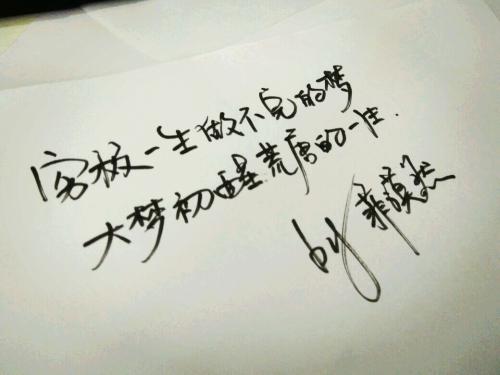 穷极一生做不完的梦
大梦初醒荒唐的一生.
by 菲漠然